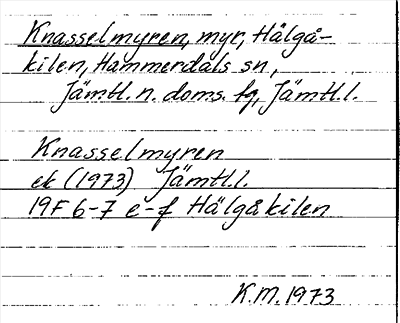 Knasselmyren, myr, Hälgå-
kilen, Hammerdals sn,
Jämtl. n. doms. fq, Jämtl. l.
Knasselmyren
ek (1973) Jämtl. l.
19F 6-7 e-f Hälgåkilen
K.M. 1973